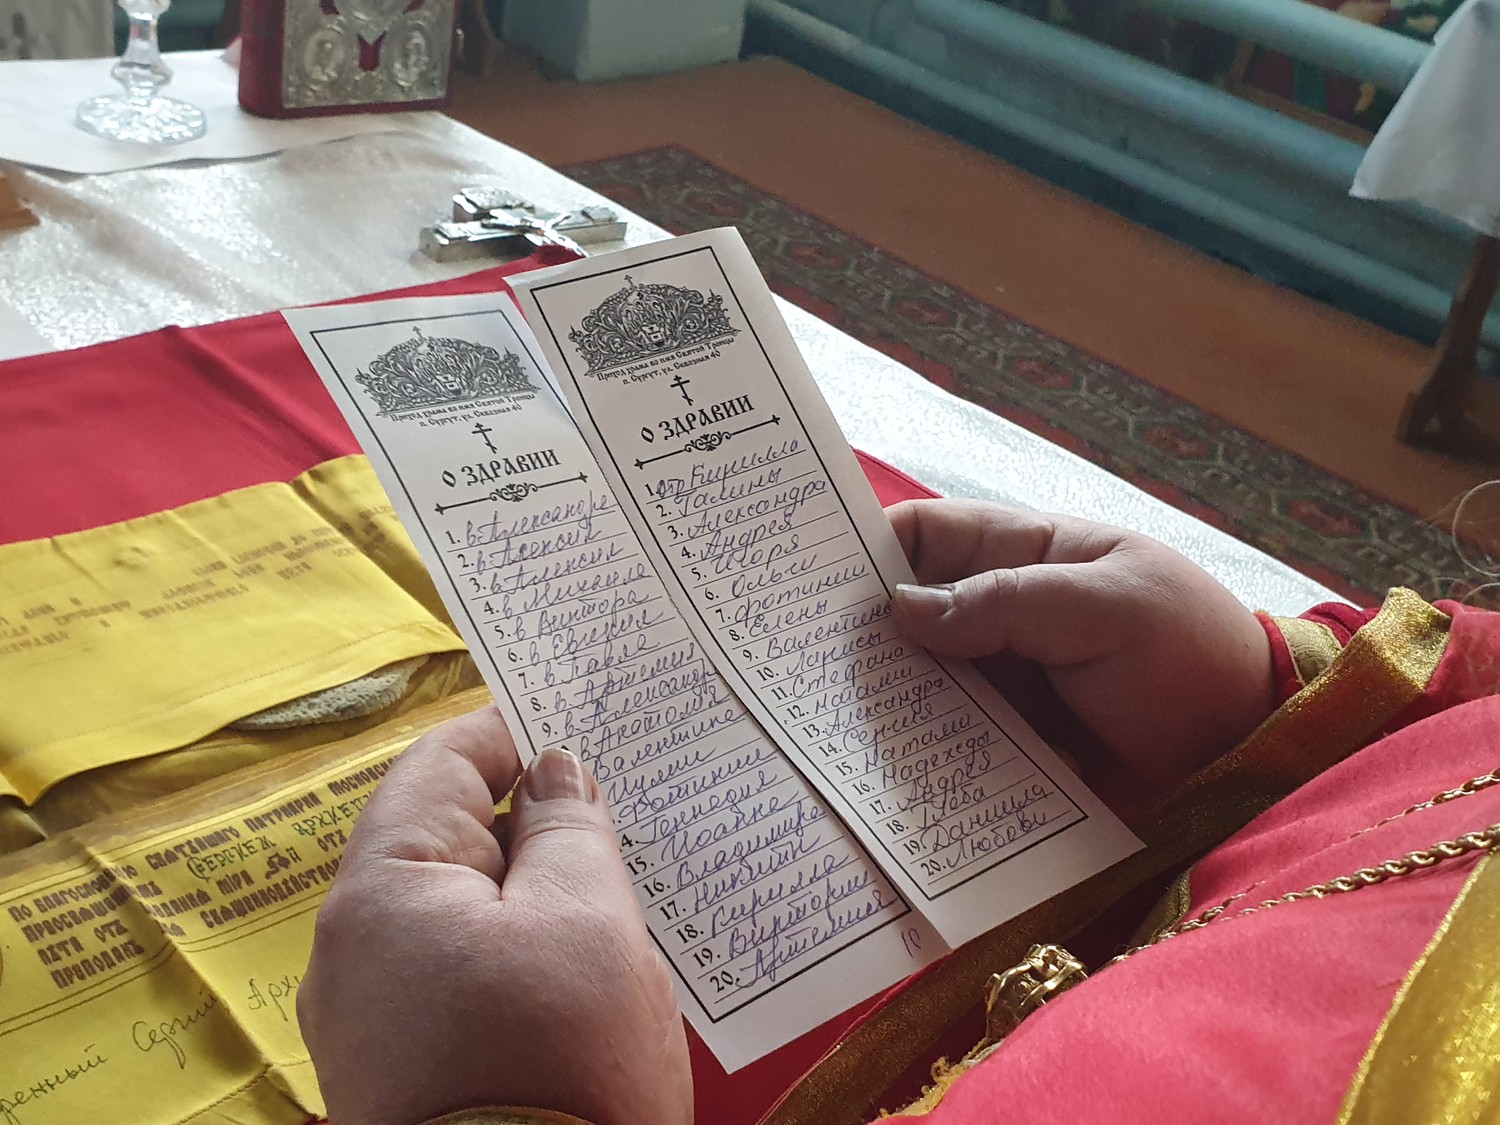 Приход храма во имя Святой Троицы
п. Сургут, ул. Сквозная 40
О ЗДРАВИИ
1. в. Александре
2. в. Алексия
3. в. Алексия
4. в Михаила
5. в Виктора
6. в Евгения
7. в. Павла
8. в. Артемия
9. в. Александр
в Анатолия
Валентина
Юлии
Фотинии
4. Геннадия
15. Иоанна
16. Владимира
17. Никиты
18. Кирилла
19. Виктории
20. Артемия
10
Приход храма во имя Святой Троицы
п. Сургут, ул. Сквозная 40
О ЗДРАВИИ
1. отр Кирилла
2. Галины
3. Александра
4. Андрея
5. Игоря
6. Ольги
7. Фотинии
8. Елены
9. Валентина
10. Ларисы
11. Стефана
12. Наталии
13. Александра
14. Сергия
15. Наталии
16. Надежды
17. Андрея
18. Глеба
19. Даниила
20. Любови
По благословению Святѣйшаго Патріарха Московска
Преосвященнымъ Сергіем
лѣта отъ отъ
Преподанъ Священнодѣйство
ренный Сергий Архи